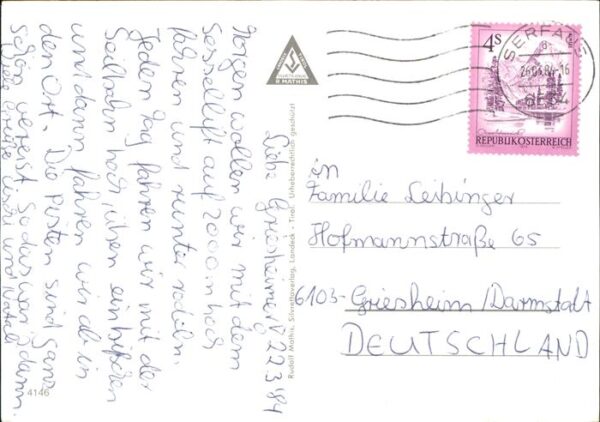 Liebe Griesheimer! 22.3.84
Morgen wollen wir mit dem
Sessellift auf 2000 m hoch
fahren und runter rodeln.
Jeden Tag fahren wir mit der
Seilbahn hoch, üben ein bißchen
und dann fahren wir ab in
den Ort. Die Pisten sind ganz
schön vereist. So das war's dann.
Liebe Grüße und
4146
R. MATHIS
Rudolf Mathis, Silvrettaverlag, Landeck - Tirol Urheberrechtlich geschützt
SERFAUS
4s
REPUBLIK ÖSTERREICH
An
Familie Leibinger
Hofmannstraße 65
6103-Griesheim/Darmstadt
DEUTSCHLAND